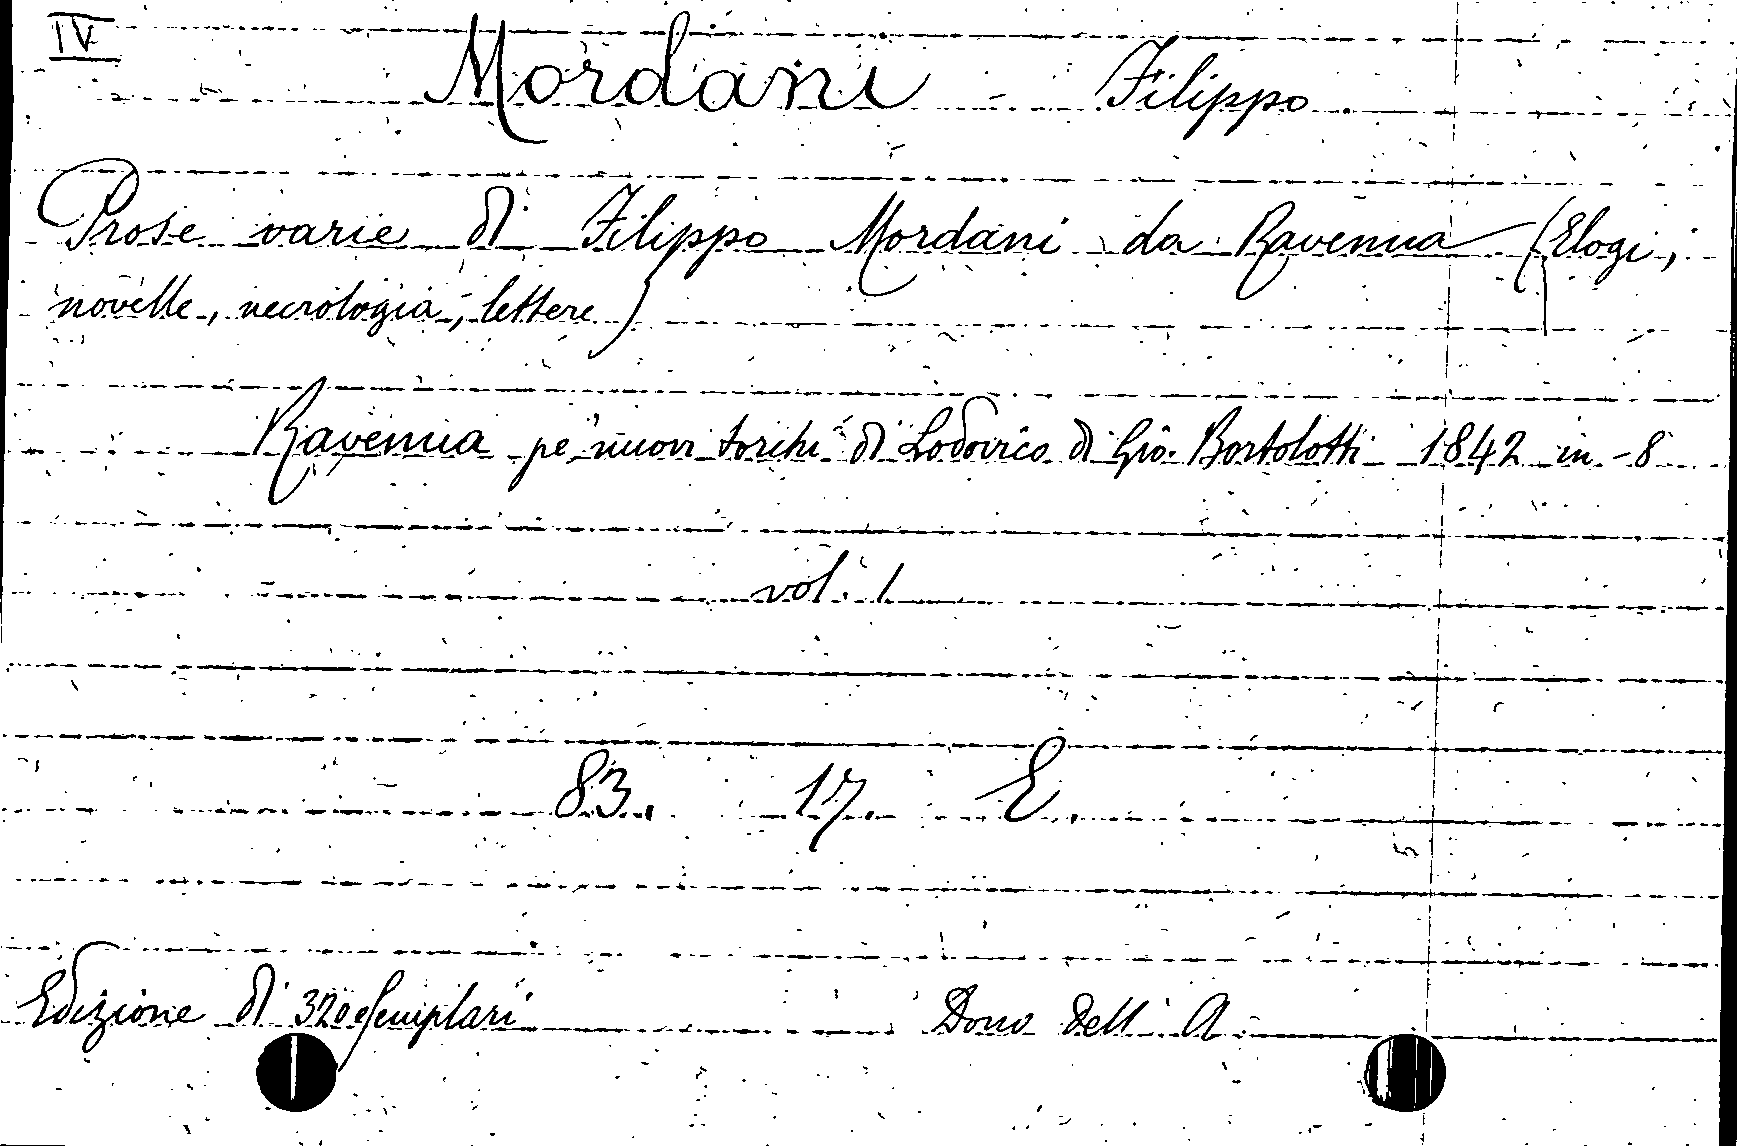 IV
Mordani Filippo
Prose varie di Filippo Mordani da Ravenna (Elogi,
novelle, necrologia, lettere)
Ravenna pe' nuovi torchi di Lodovico di Gio. Bortolotti 1842 in-8
vol. 1
83. 17. E.
Edizione di 320 esemplari Dono dell' A.